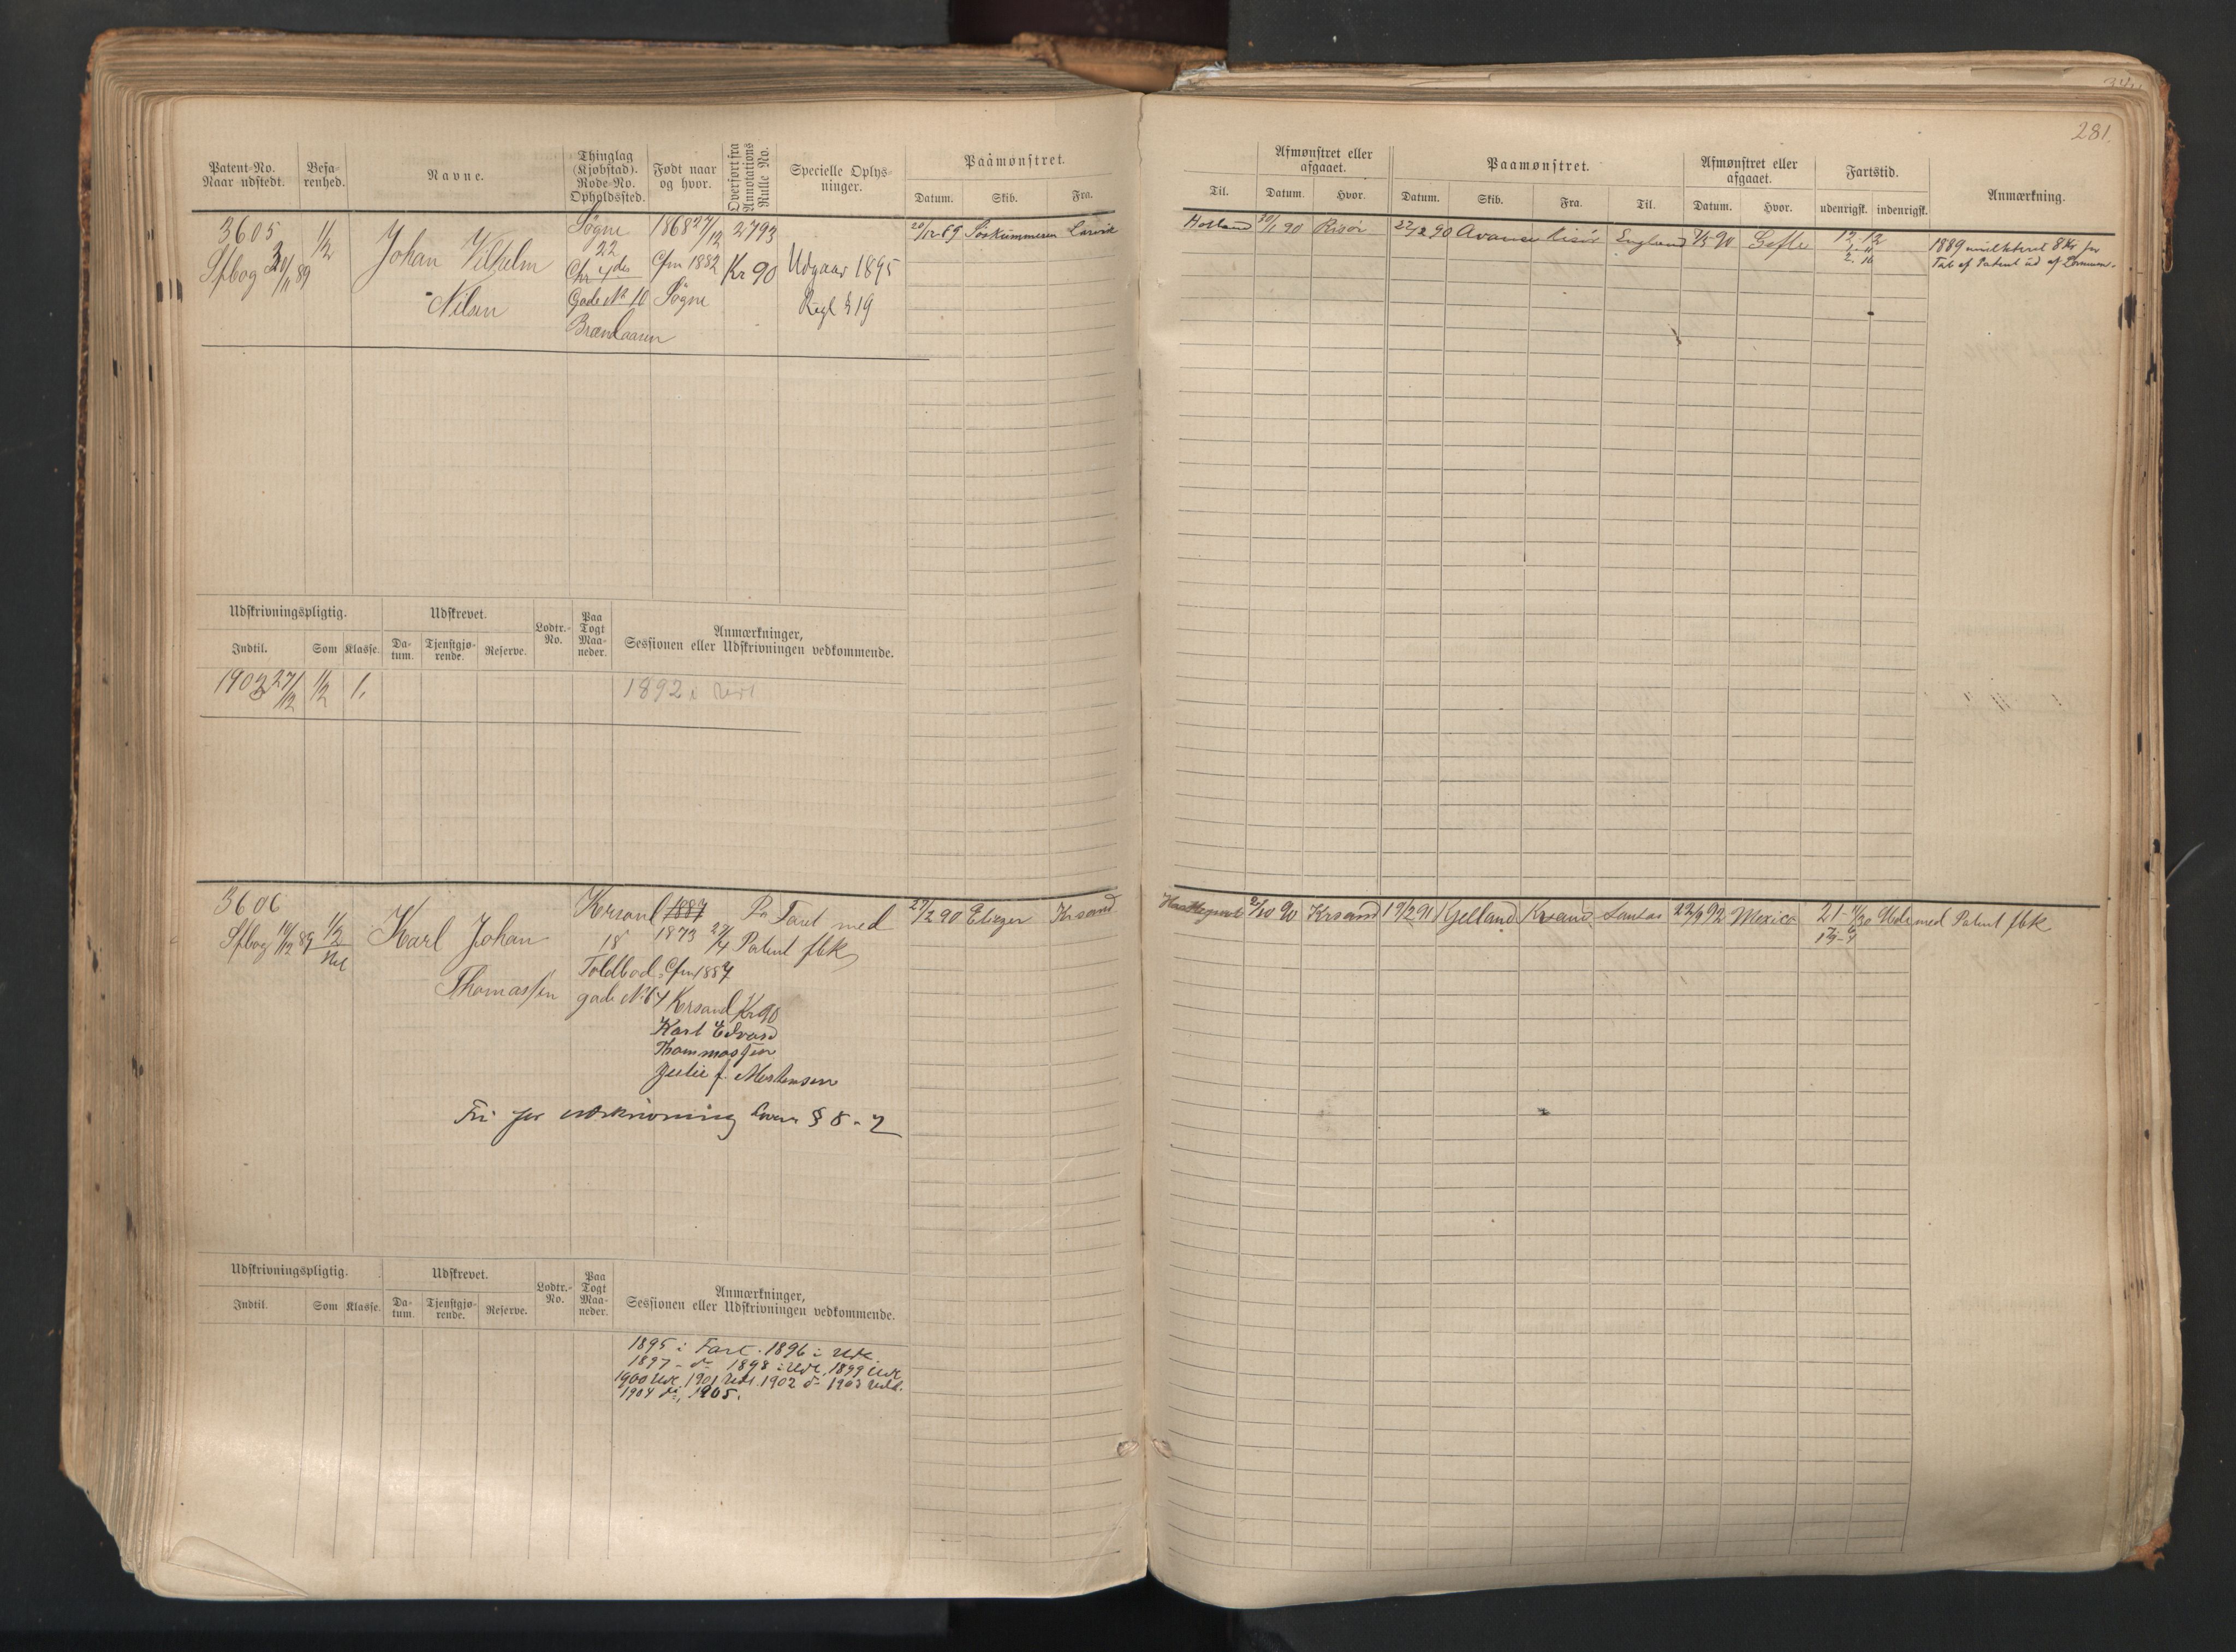 281.
Patent-No.
Naar udstedt.
Befa-
renhed.
Navne.
Thinglag
(Kjøbstad).
Rode-No.
Opholdssted.
Født naar
og hvor.
Overført fra
Annotations
Rulle No.
Specielle Oplys-
ninger.
Paamønstret.
Datum.
Skib.
Fra.
Til.
Afmønstret eller
afgaaet.
Datum.
Hvor.
Paamønstret.
Datum.
Skib.
Fra.
Til.
Afmønstret eller
afgaaet.
Datum.
Hvor.
Fartstid.
udenrigsk.
indenrigsk.
Anmærkning.
3605
Sfbog 30/11 89
1/2
Johan Vilhelm
Nilsen
Søgne
22
Gade No 10
Brændaasen
1868 27/12
Cfm 1882
Søgne
2793
Kr 90
Udgaar 1895
Regl § 19
20/12 89 Larvik
Holland 30/1 90 Risør
22/2 90 Avance Risør England 7/5 90 Gefle
12-12
1889 8 Kr for
Tab af Patent
Udskrivningspligtig.
Indtil.
Som
Klasse.
Udskrevet.
Da-
tum.
Tjenstgjø-
rende.
Reserve.
Lodtr.-
No.
Paa
Togt
Maa-
neder.
Anmærkninger,
Sessionen eller Udskrivningen vedkommende.
1903 27/12 1/2 1.
1892 i
3606
Sfbog 14/12 89
1/2
Karl Johan
Thomassen
Krsand
18
Toldbod-
gade No 64
1887
1873 27/4
Cfm 1887
Krsand Kr 90
Karl Edvard
Thommassen
Julie f. Mortensen
Pa Taret med
Patent fbk
Fri for udskrivning Loven § 8 - 2
27/2 90 Eliezer Krsand
2/10 90 Krsand
17/2 91 Gelland Krsand Santos 22/9 92 Mexico
21-
med Patent fbk
Udskrivningspligtig.
Indtil.
Som
Klasse.
Udskrevet.
Da-
tum.
Tjenstgjø-
rende.
Reserve.
Lodtr.-
No.
Paa
Togt
Maa-
neder.
Anmærkninger,
Sessionen eller Udskrivningen vedkommende.
1895 i Fart. 1896 i Udl.
1897 - do 1898 i Udl. 1899 Udl.
1900 Udl. 1901 Udl. 1902 do 1903 Udl.
1904 do, 1905.